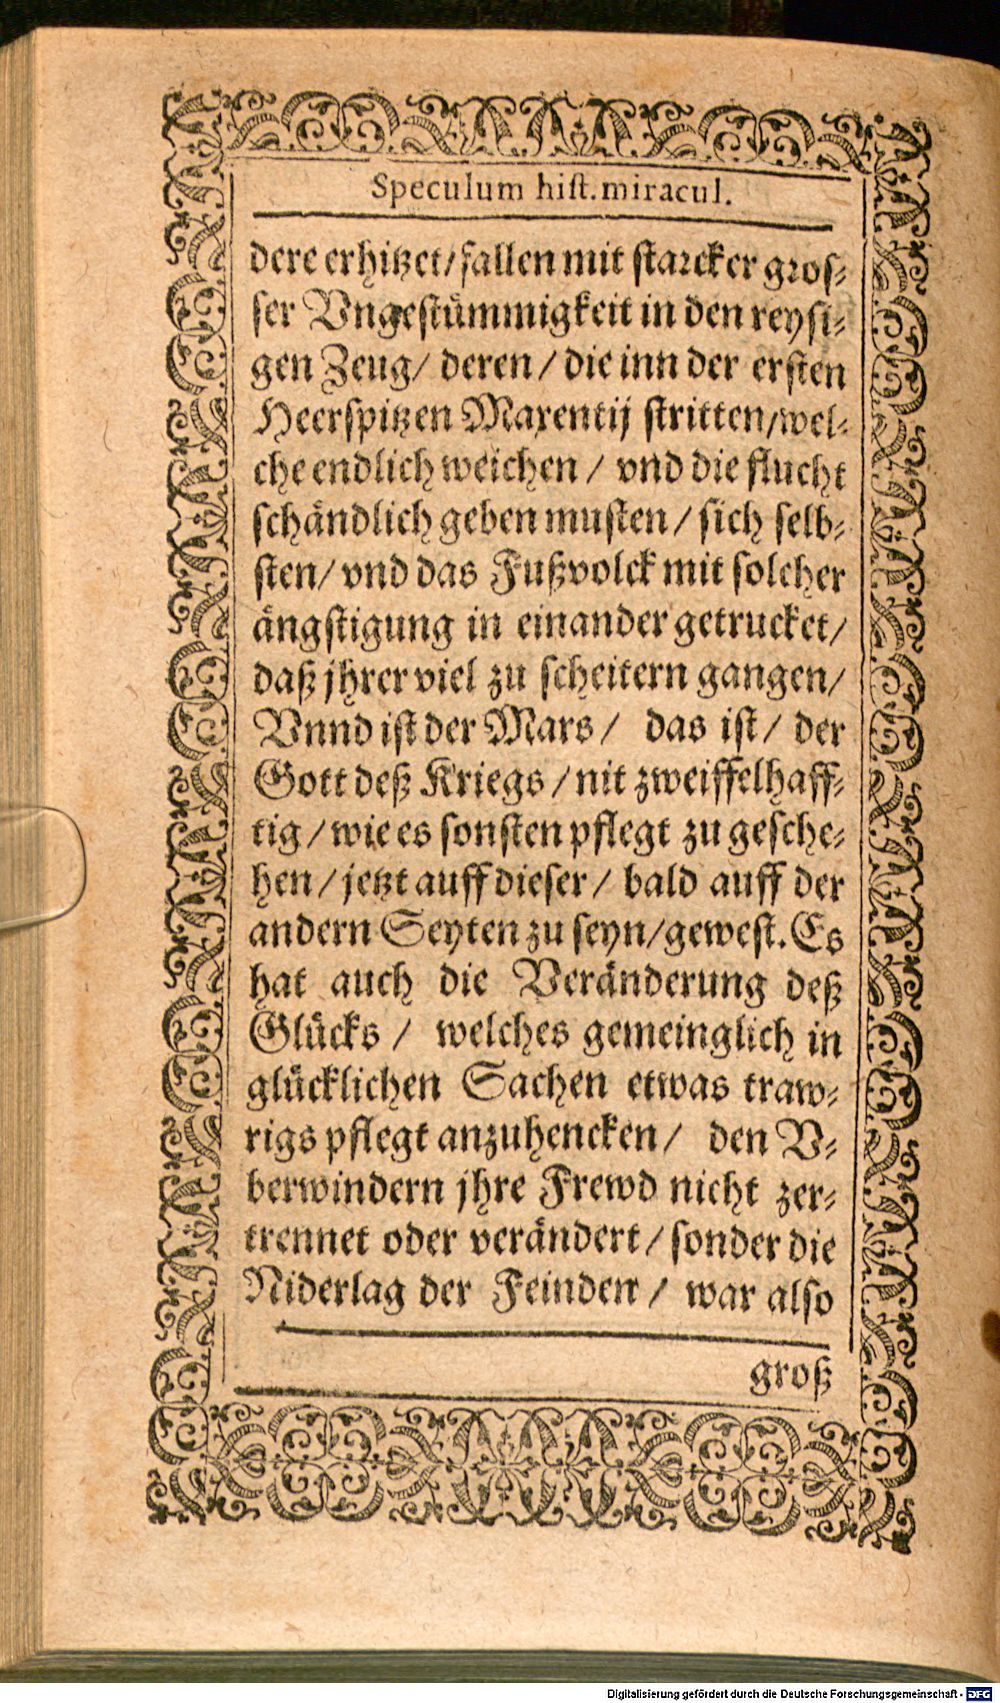 Speculum hist. miracul.
dere erhitzet/fallen mit starcker gros-
ser Vngestümmigkeit in den reysi-
gen Zeug/ deren/ die inn der ersten
Heerspitzen Maxentij stritten/wel-
che endlich weichen/ vnd die flucht
schändlich geben musten/ sich selb-
sten/ vnd das Fußvolck mit solcher
ängstigung in einander getrucket/
daß jhrer viel zu scheitern gangen/
Vnnd ist der Mars/ das ist/ der
Gott deß Kriegs/nit zweiffelhaff-
tig/ wie es sonsten pflegt zu gesche-
hen/ jetzt auff dieser/ bald auff der
andern Seyten zu seyn/gewest. Es
hat auch die Veränderung deß
Glücks/ welches gemeinglich in
glücklichen Sachen etwas traw-
rigs pflegt anzuhencken/ den V-
berwindern jhre Frewd nicht zer-
trennet oder verändert/ sonder die
Niderlag der Feinden/ war also
groß
Digitalisierung gefördert durch die Deutsche Forschungsgemeinschaft - DFG